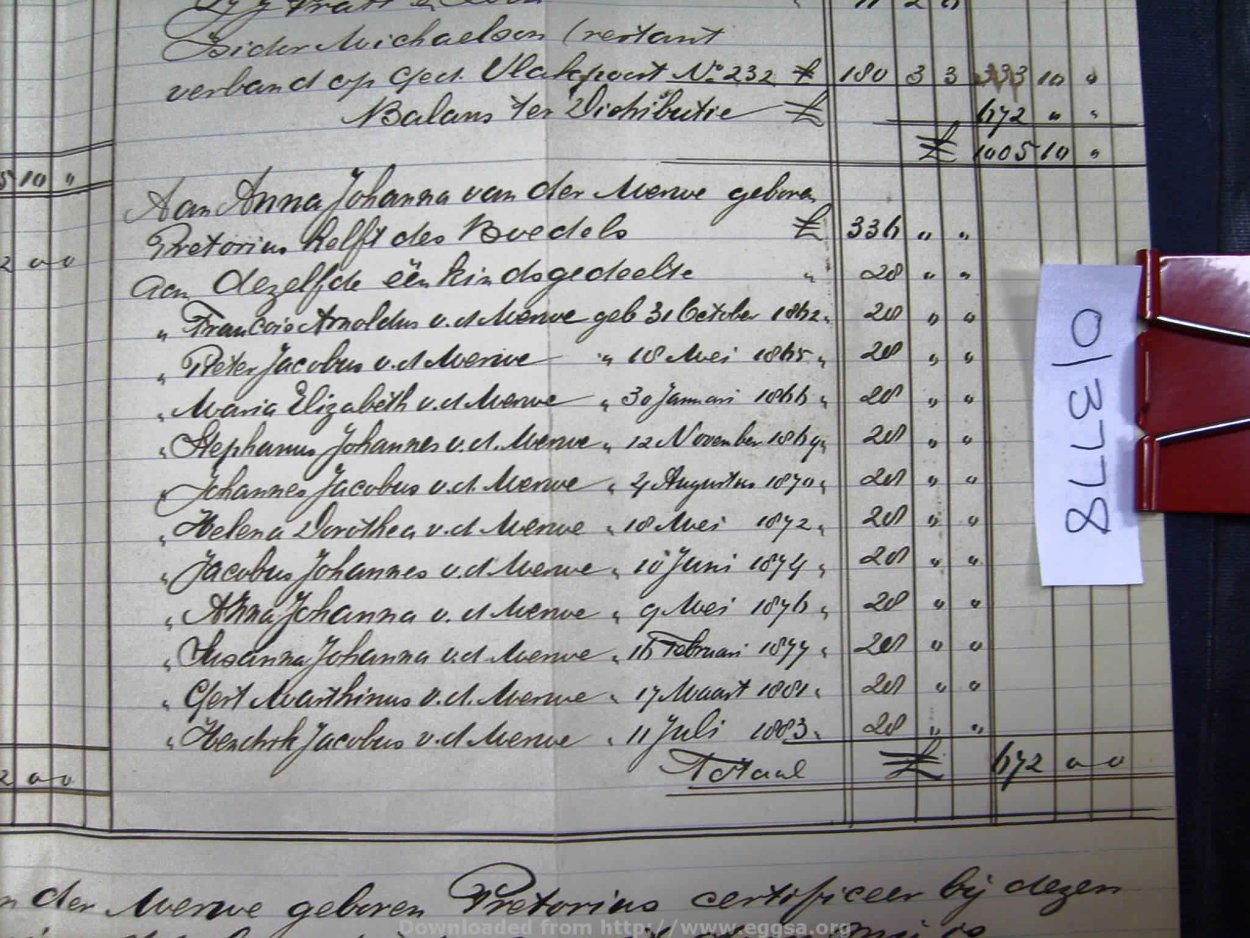 Isidor Michaelson (restant
verband op Ged. Vlakpoort No 232 £ 180 3 3 333 10 "
Balans ter Distributie £ 672 " "
£ 1005 10 "
5 10 "
Aan Anna Johanna van der Merwe geboren
Pretorius helft des Boedels £ 336 " "
2 0 0
Aan dezelfde een kindsgedeelte " 28 " "
" Francois Arnoldus v.d. Merwe geb 31 October 1862 " 28 " "
" Pieter Jacobus v.d. Merwe " 18 Mei 1865 " 28 " "
" Maria Elizabeth v.d. Merwe " 30 Januari 1866 " 28 " "
" Stephanus Johannes v.d. Merwe " 12 November 1867 " 28 " "
" Johannes Jacobus v.d. Merwe " 4 Augustus 1870 " 28 " "
" Helena Dorothea v.d. Merwe " 18 Mei 1872 " 28 " "
" Jacobus Johannes v.d. Merwe " 10 Juni 1874 " 28 " "
" Anna Johanna v.d. Merwe " 9 Mei 1876 " 28 " "
" Susanna Johanna v.d. Merwe " 16 Februari 1877 " 28 " "
" Gert Marthinus v.d. Merwe " 17 Maart 1881 " 28 " "
" Hendrik Jacobus v.d. Merwe " 11 Juli 1883 " 28 " "
2 0 0
Totaal £ 672 0 0
n der Merwe geboren Pretorius certificeer bij dezen
Downloaded from http://www.eggsa.org
013778